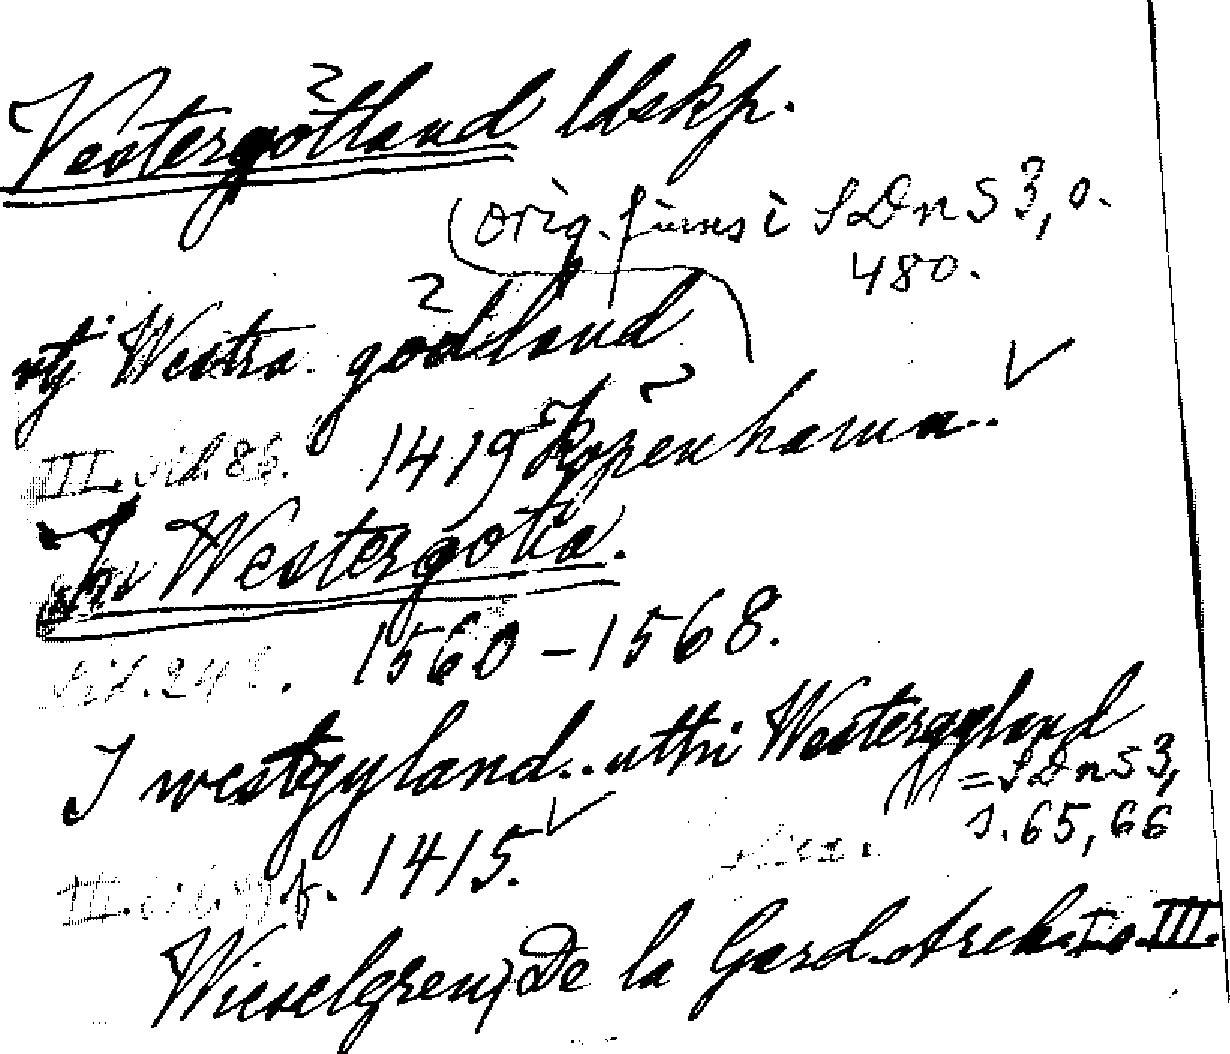 Vestergötland ldskp.
(orig. finns i SDns 3, s.
480.
vtj Westra götland
III. sid. 86. 1419 Köpenhamn.
In Westergotia.
sid. 248. 1560-1568.
I westgyland..uthi Westergyland
=SDns 3,
s. 65, 66
III. sid. f. 1415.
Wieselgren, De la Gard. Arch. I o. III.